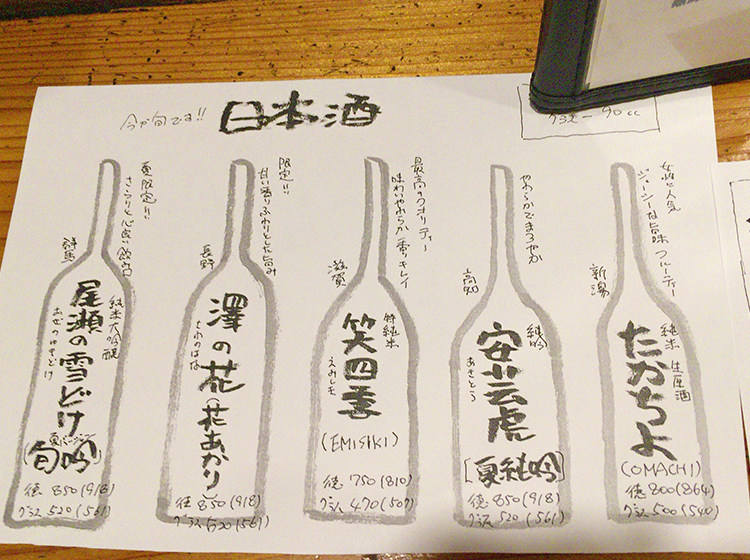 今が旬です!!
日本酒
グラス－90cc
女性に人気
ジューシーな旨味 フルーティー
新潟
純米 生原酒
たかちよ
(OMACHI)
徳 800(864)
グラス 500(540)
やわらかでまろやか
高知
純吟
安芸虎
あきとら
[夏純吟]
徳 850(918)
グラス 520(561)
最高のクオリティー
味わいやわらか 香りキレイ
滋賀
特純米
笑四季
えみしき
(EMISIKI)
徳 750(810)
グラス 470(507)
限定!!
甘い香りふわりとした旨み
長野
澤の花
さわのはな
(花あかり)
徳 850(918)
グラス 520(561)
夏限定!!
さらりと心良い飲み口
群馬
純米大吟醸
尾瀬の雪どけ
おぜのゆきどけ
夏バージョン
(旬吟)
徳 850(918)
グラス 520(561)